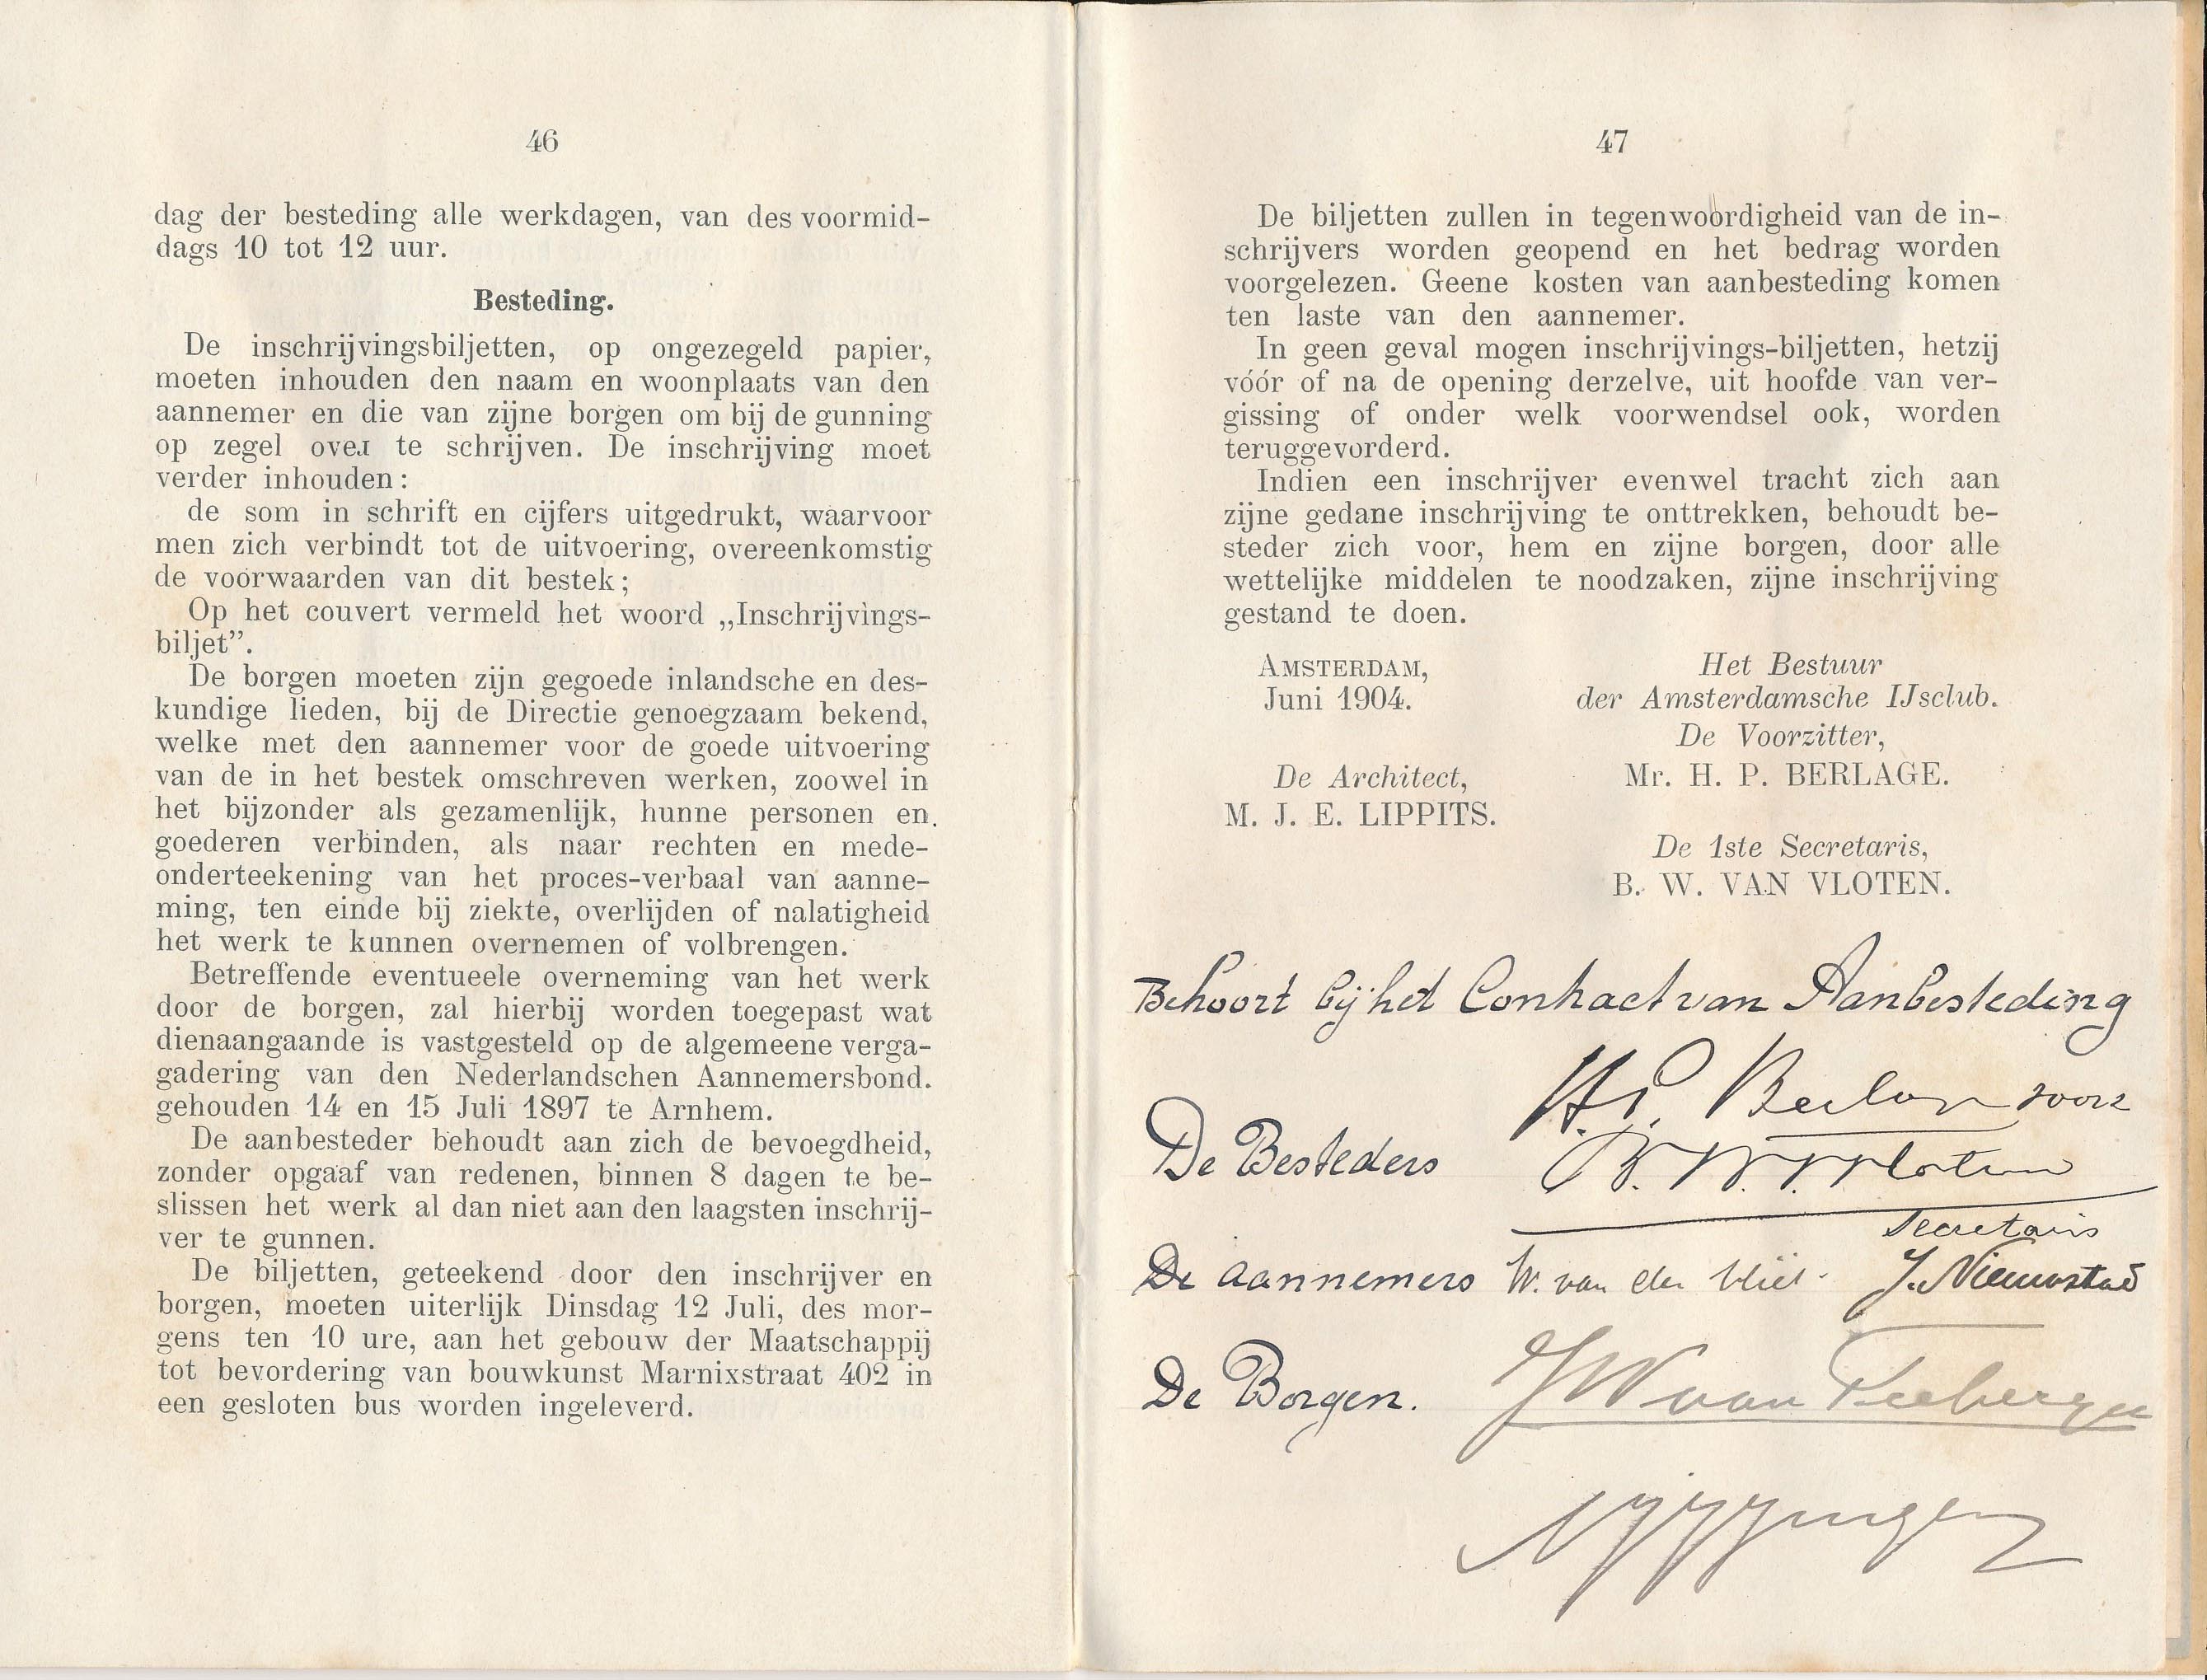 46
dag der besteding alle werkdagen, van des voormid-
dags 10 tot 12 uur.
Besteding.
De inschrijvingsbiljetten, op ongezegeld papier,
moeten inhouden den naam en woonplaats van den
aannemer en die van zijne borgen om bij de gunning
op zegel over te schrijven. De inschrijving moet
verder inhouden:
de som in schrift en cijfers uitgedrukt, waarvoor
men zich verbindt tot de uitvoering, overeenkomstig
de voorwaarden van dit bestek;
Op het couvert vermeld het woord „Inschrijvings-
biljet”.
De borgen moeten zijn gegoede inlandsche en des-
kundige lieden, bij de Directie genoegzaam bekend,
welke met den aannemer voor de goede uitvoering
van de in het bestek omschreven werken, zoowel in
het bijzonder als gezamenlijk, hunne personen en
goederen verbinden, als naar rechten en mede-
onderteekening van het proces-verbaal van aanne-
ming, ten einde bij ziekte, overlijden of nalatigheid
het werk te kunnen overnemen of volbrengen.
Betreffende eventueele overneming van het werk
door de borgen, zal hierbij worden toegepast wat
dienaangaande is vastgesteld op de algemeene verga-
gadering van den Nederlandschen Aannemersbond.
gehouden 14 en 15 Juli 1897 te Arnhem.
De aanbesteder behoudt aan zich de bevoegdheid,
zonder opgaaf van redenen, binnen 8 dagen te be-
slissen het werk al dan niet aan den laagsten inschrij-
ver te gunnen.
De biljetten, geteekend door den inschrijver en
borgen, moeten uiterlijk Dinsdag 12 Juli, des mor-
gens ten 10 ure, aan het gebouw der Maatschappij
tot bevordering van bouwkunst Marnixstraat 402 in
een gesloten bus worden ingeleverd.
47
De biljetten zullen in tegenwoordigheid van de in-
schrijvers worden geopend en het bedrag worden
voorgelezen. Geene kosten van aanbesteding komen
ten laste van den aannemer.
In geen geval mogen inschrijvings-biljetten, hetzij
vóór of na de opening derzelve, uit hoofde van ver-
gissing of onder welk voorwendsel ook, worden
teruggevorderd.
Indien een inschrijver evenwel tracht zich aan
zijne gedane inschrijving te onttrekken, behoudt be-
steder zich voor, hem en zijne borgen, door alle
wettelijke middelen te noodzaken, zijne inschrijving
gestand te doen.
AMSTERDAM,
Juni 1904.
De Architect,
M. J. E. LIPPITS.
Het Bestuur
der Amsterdamsche IJsclub.
De Voorzitter,
Mr. H. P. BERLAGE.
De 1ste Secretaris,
B. W. VAN VLOTEN.
Behoort bij het Contract van Aanbesteding
H. P. Berlage voorz
De Besteders B. W. v. Vloten
Secretaris
De Aannemers W. van der Vliet. J. Nieuwstad
De Borgen. JW van